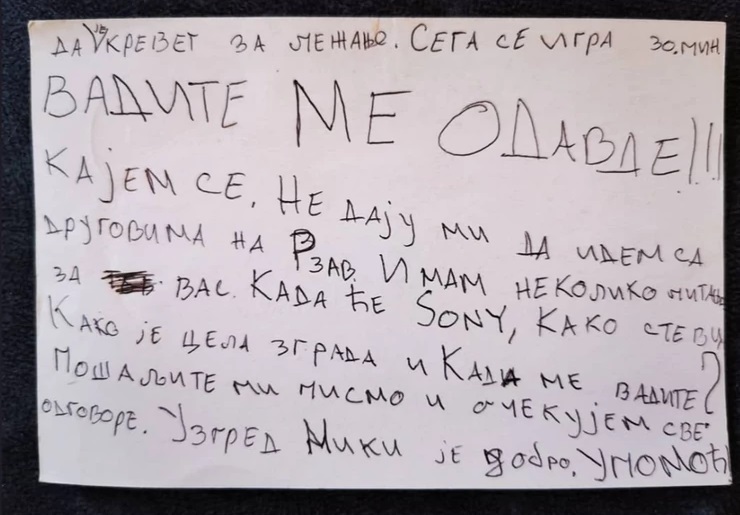 ДА ЈЕ КРЕВЕТ ЗА ЛЕЖАЊЕ. СЕГА СЕ ИГРА 30. МИН
ВАДИТЕ МЕ ОДАВДЕ!!!
КАЈЕМ СЕ. НЕ ДАЈУ МИ ДА ИДЕМ СА
ДРУГОВИМА НА РЗАВ. ИМАМ НЕКОЛИКО ПИТАЊА
ЗА ВАС. КАДА ЋЕ SONY, КАКО СТЕ ВИ
КАКО ЈЕ ЦЕЛА ЗГРАДА И КАДА МЕ ВАДИТЕ?
ПОШАЉИТЕ МИ ПИСМО И ОЧЕКУЈЕМ СВЕ
ОДГОВОРЕ. УЗГРЕД МИКИ ЈЕ ДОБРО. УПОМОЋ!